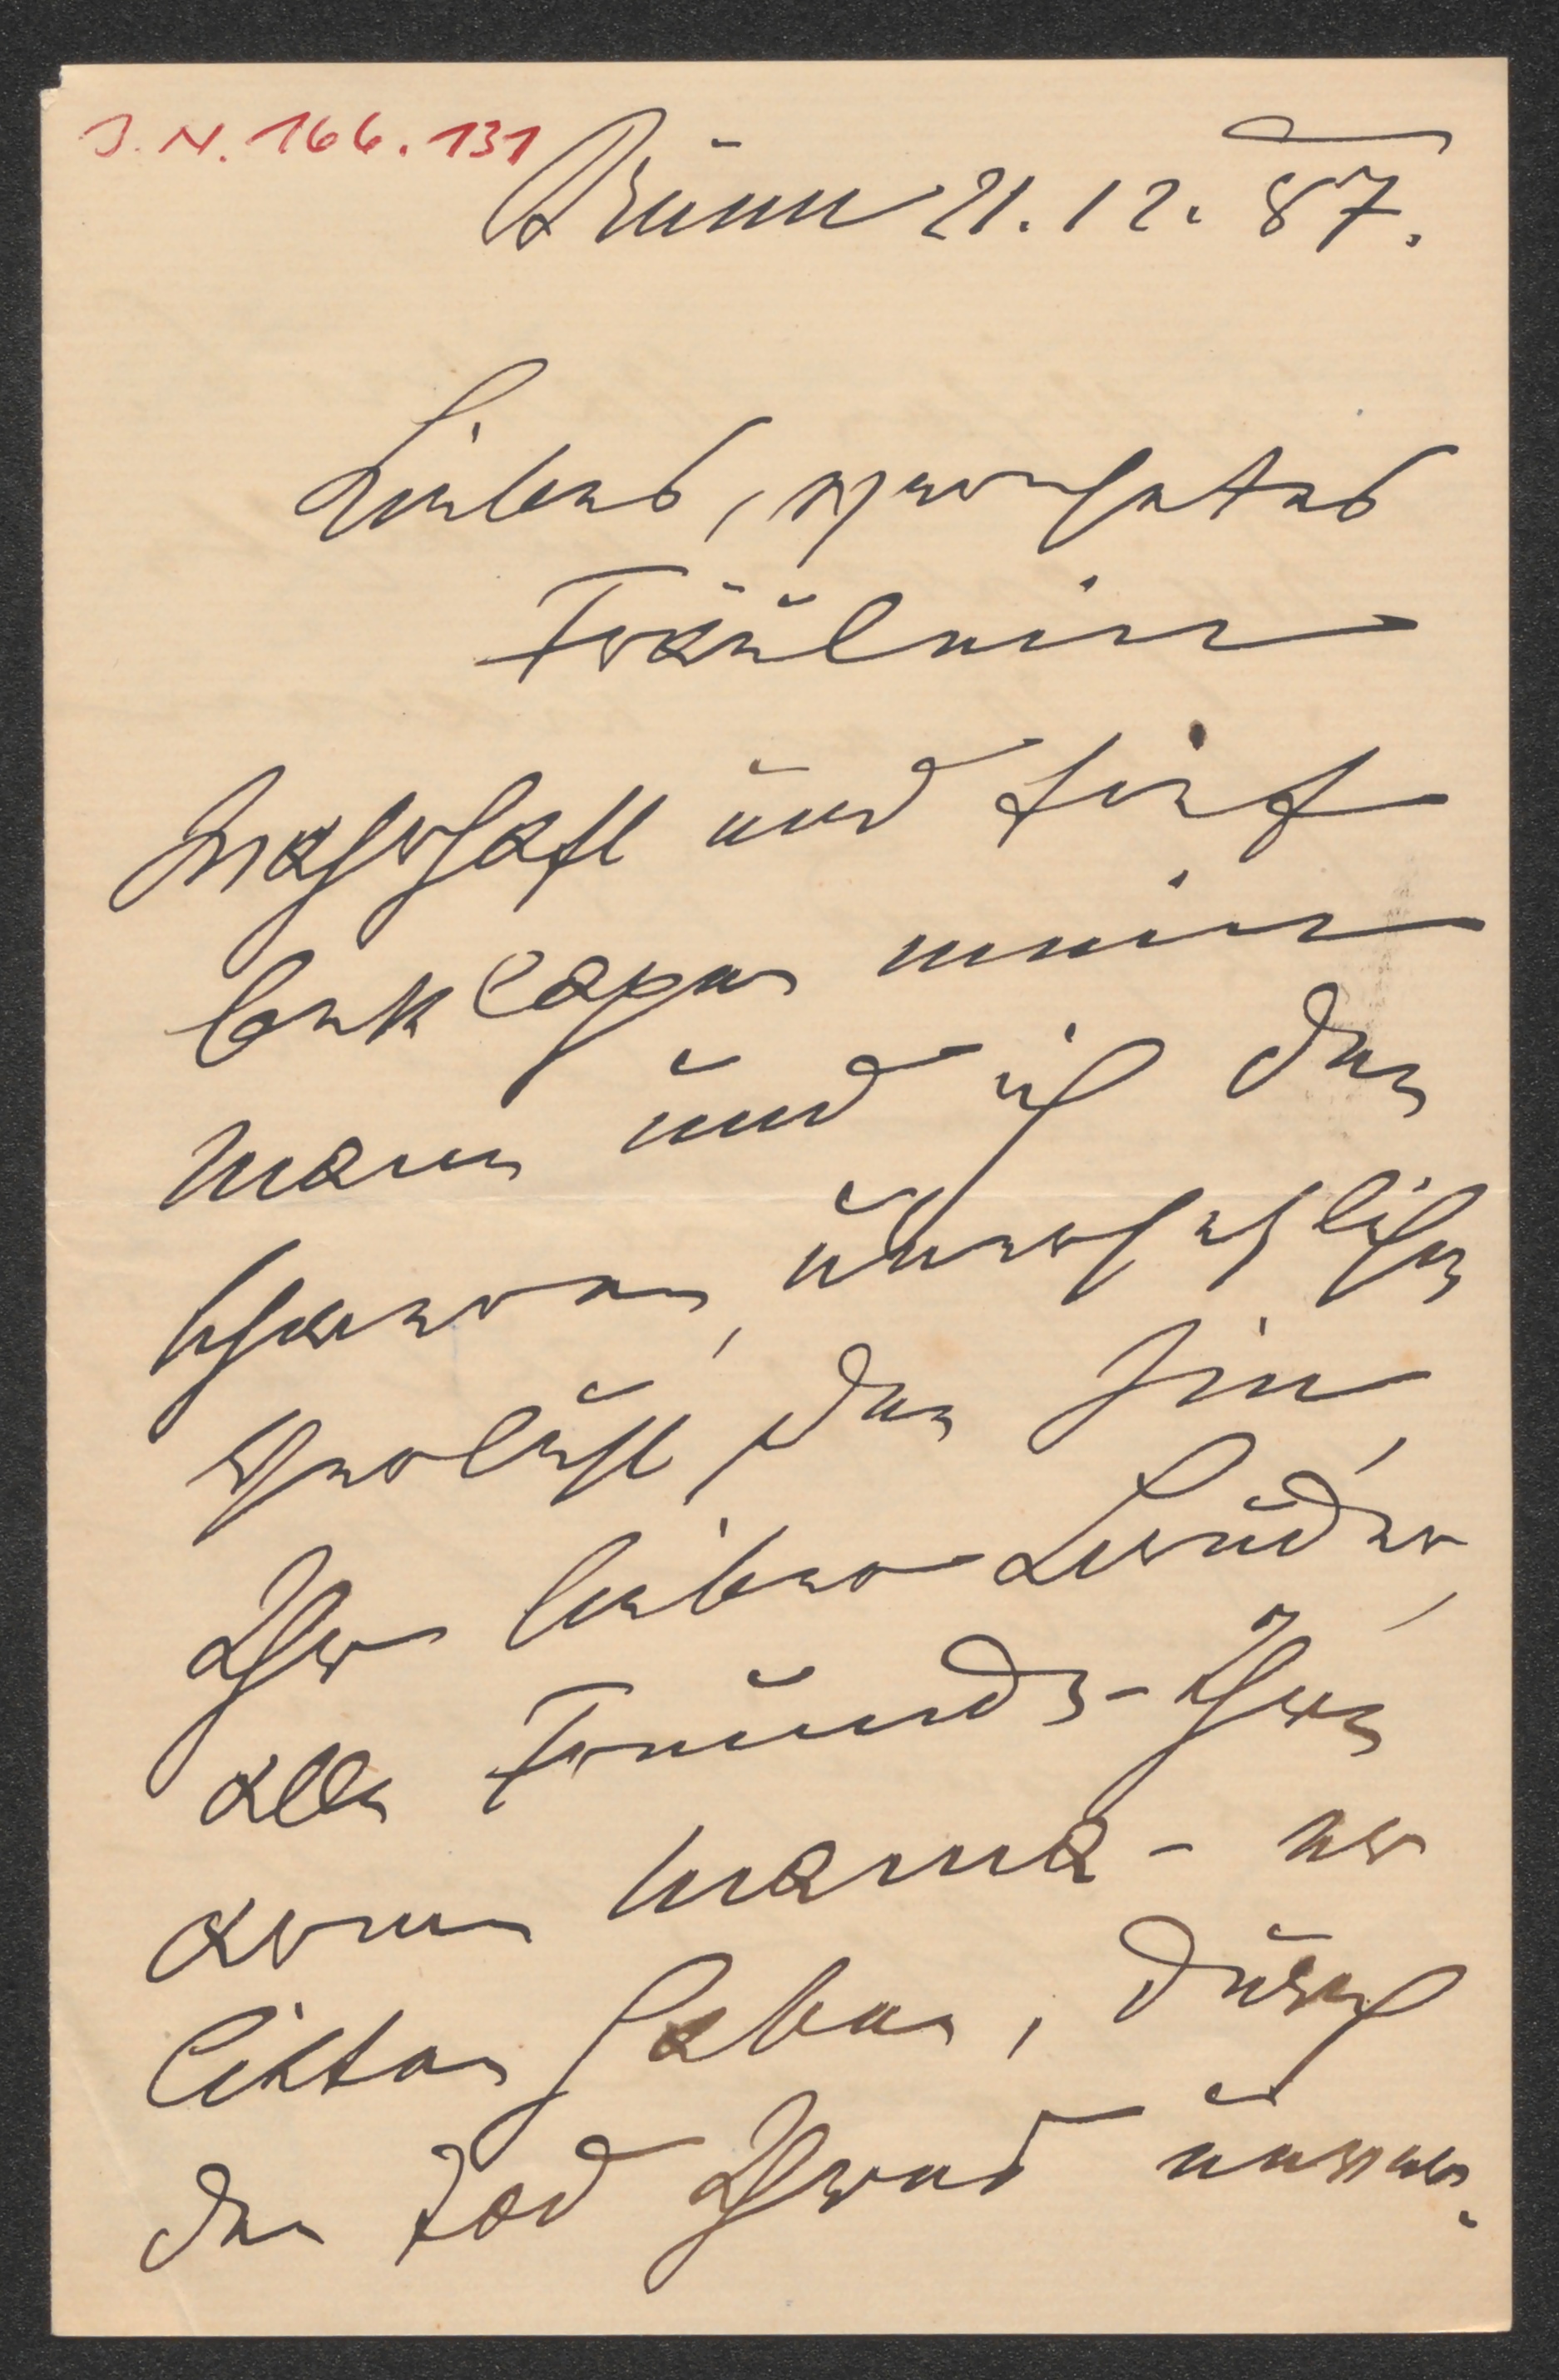 I. N. 166.131
Brünn 21.12. 87.
Liebes, verehrtes
Fräulein
Wahrhaft und tief
beklagen mein
Mann und ich den
schweren, unersetzlichen
Verlust, den Sie,
Ihr lieber Bruder,
alle Freunde - Ihre
arme Mama - er
litten haben, durch
den Tod Ihres unver.